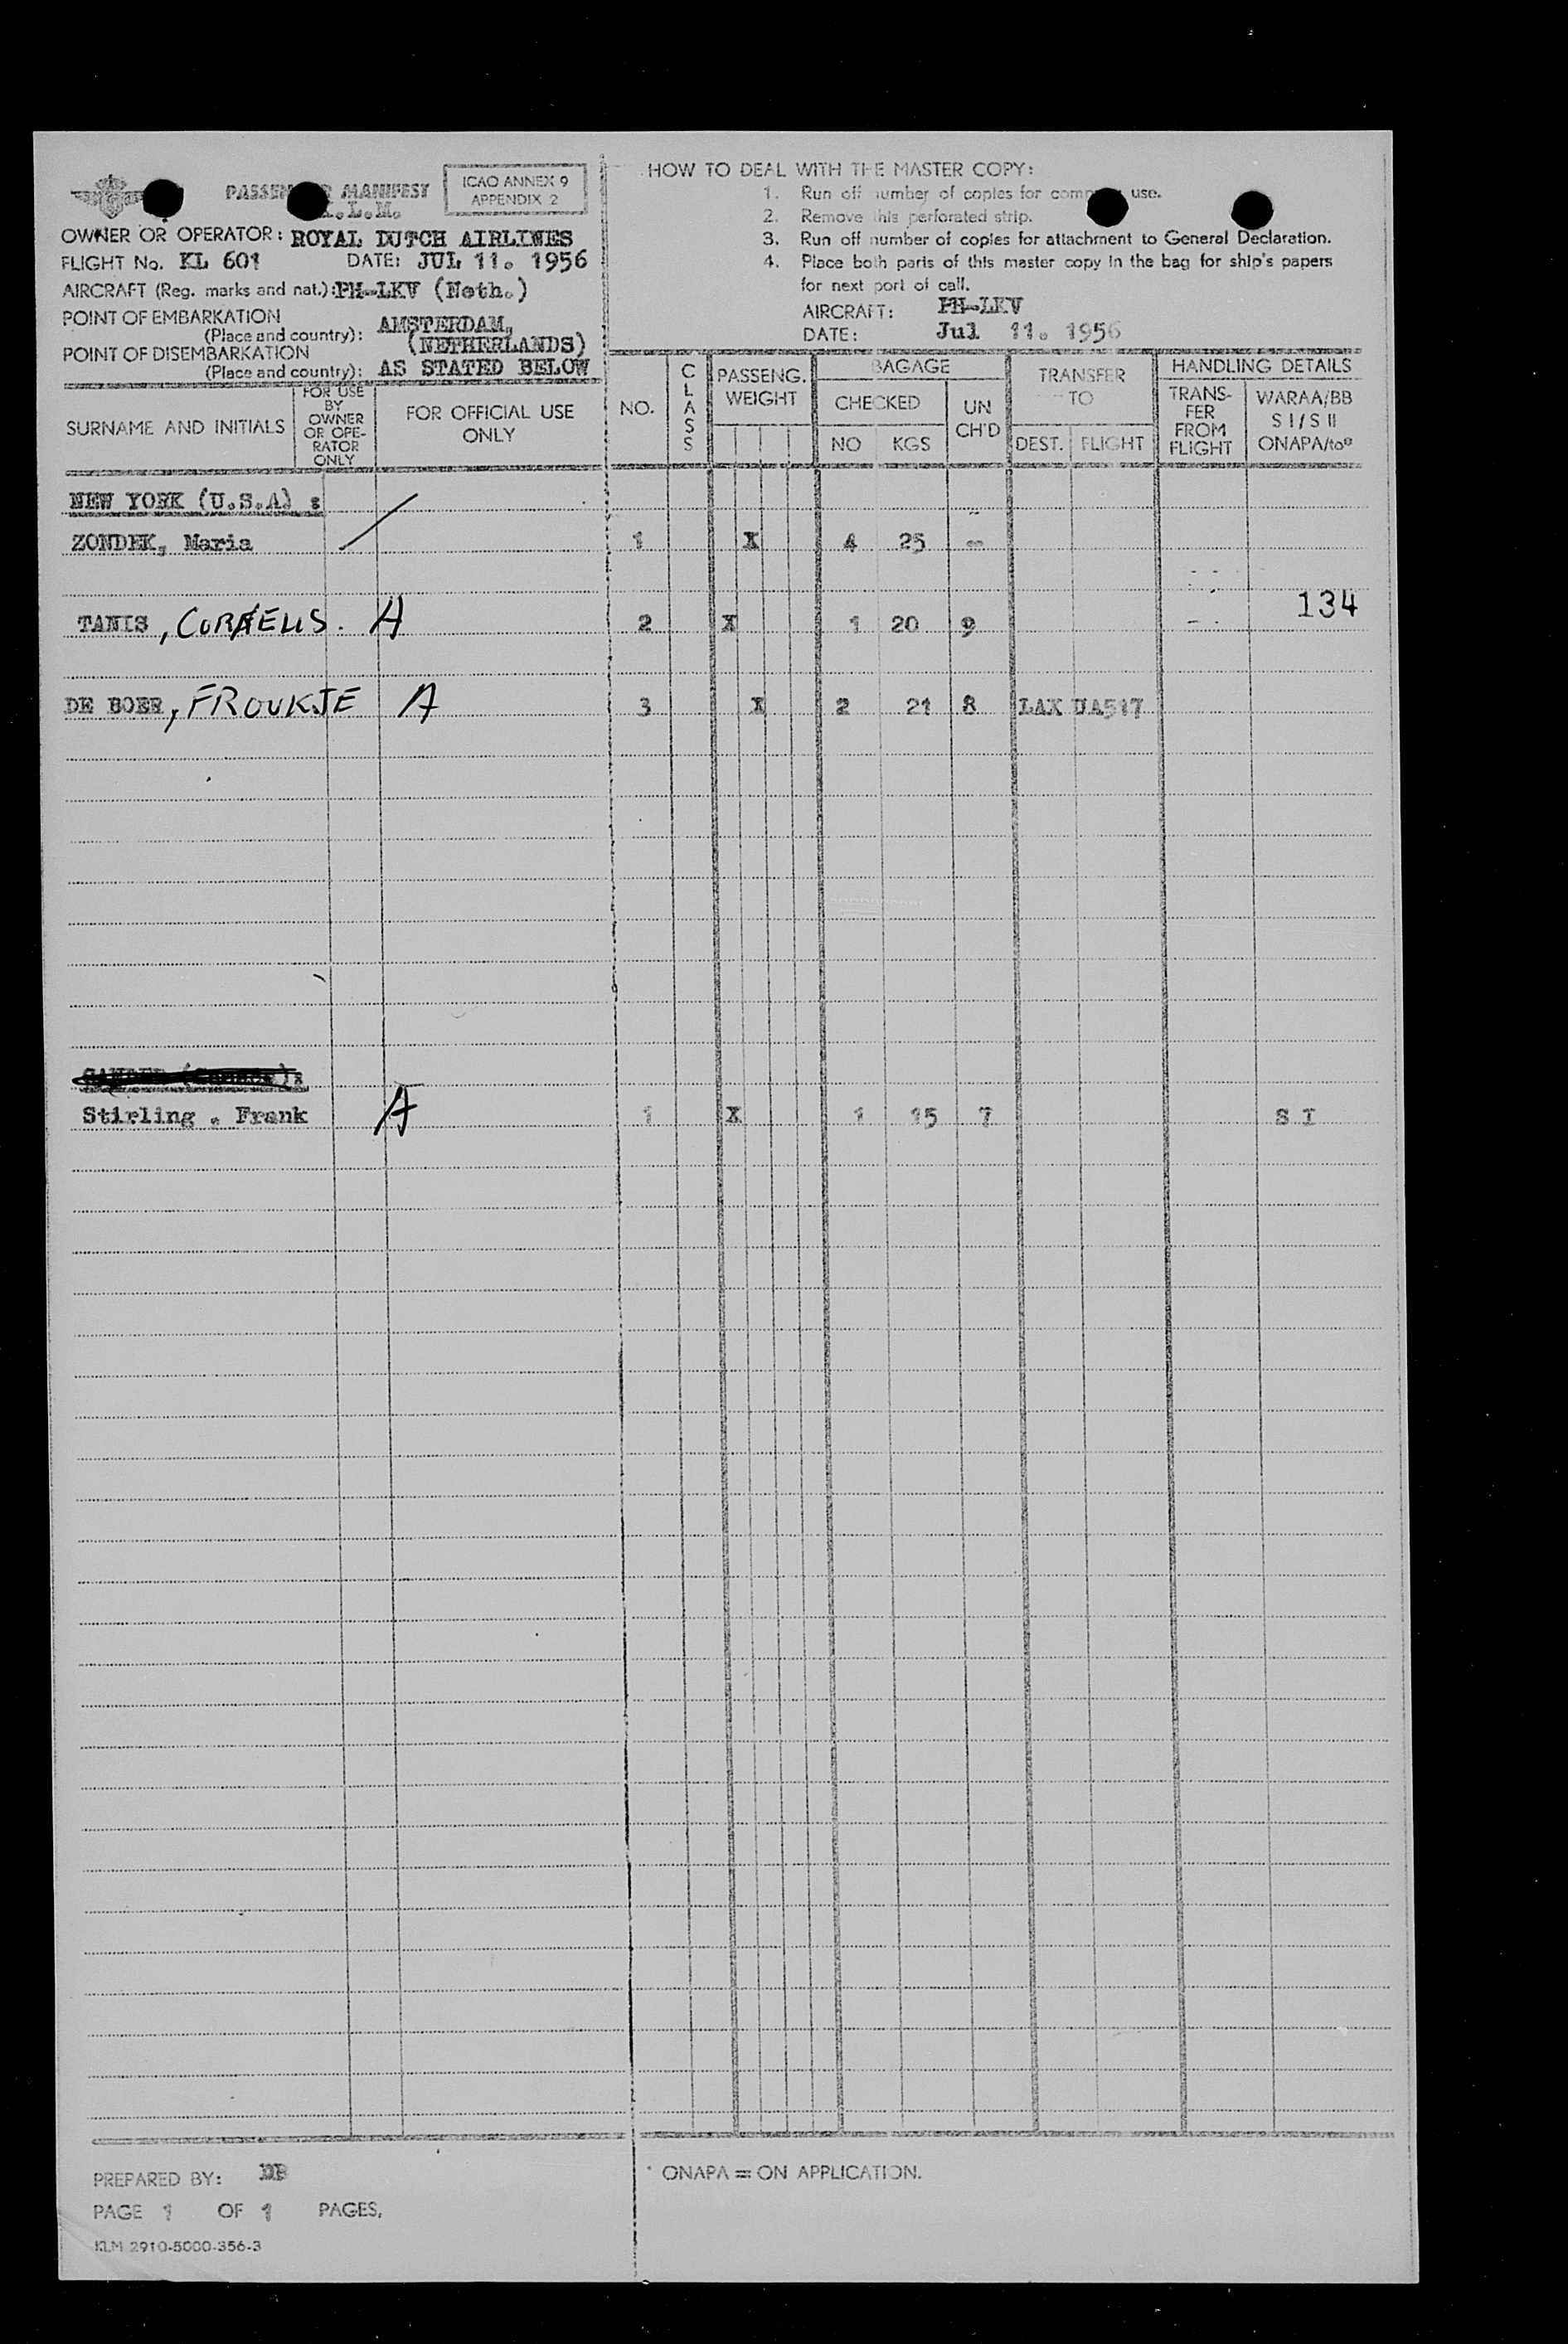 PASSEN R MANIFEST
.L.M.
ICAO ANNEX 9
APPENDIX 2
OWNER OR OPERATOR: ROYAL DUTCH AIRLINES
FLIGHT No. KL 601 DATE: JUL 11. 1956
AIRCRAFT (Reg. marks and nat.): PH-LKV (Neth.)
POINT OF EMBARKATION
(Place and country): AMSTERDAM,
(NETHERLANDS)
POINT OF DISEMBARKATION
(Place and country): AS STATED BELOW
HOW TO DEAL WITH THE MASTER COPY:
1. Run off number of copies for use.
2. Remove this perforated strip.
3. Run off number of copies for attachment to General Declaration.
4. Place both parts of this master copy in the bag for ship's papers
for next port of call.
AIRCRAFT: PH-LKV
DATE: Jul 11. 1956
SURNAME AND INITIALS
FOR USE
BY
OWNER
OR OPE-
RATOR
ONLY
FOR OFFICIAL USE
ONLY
NO.
C
L
A
S
S
PASSENG.
WEIGHT
BAGAGE
CHECKED
NO KGS
UN
CH'D
TRANSFER
TO
DEST. FLIGHT
HANDLING DETAILS
TRANS-
FER
FROM
FLIGHT
WARAA/BB
S I / S II
ONAPA/to*
NEW YORK (U.S.A) :
ZONDEK, Maria 1 X 4 25 -
134
TANIS, CORNELIS. A 2 X 1 20 9
DE BOER, FROUKJE A 3 X 2 21 8 LAX UA517
Stirling . Frank A 1 X 1 15 7 S I
PREPARED BY: DB
PAGE 1 OF 1 PAGES,
KLM 2910-5000-356-3
* ONAPA = ON APPLICATION.